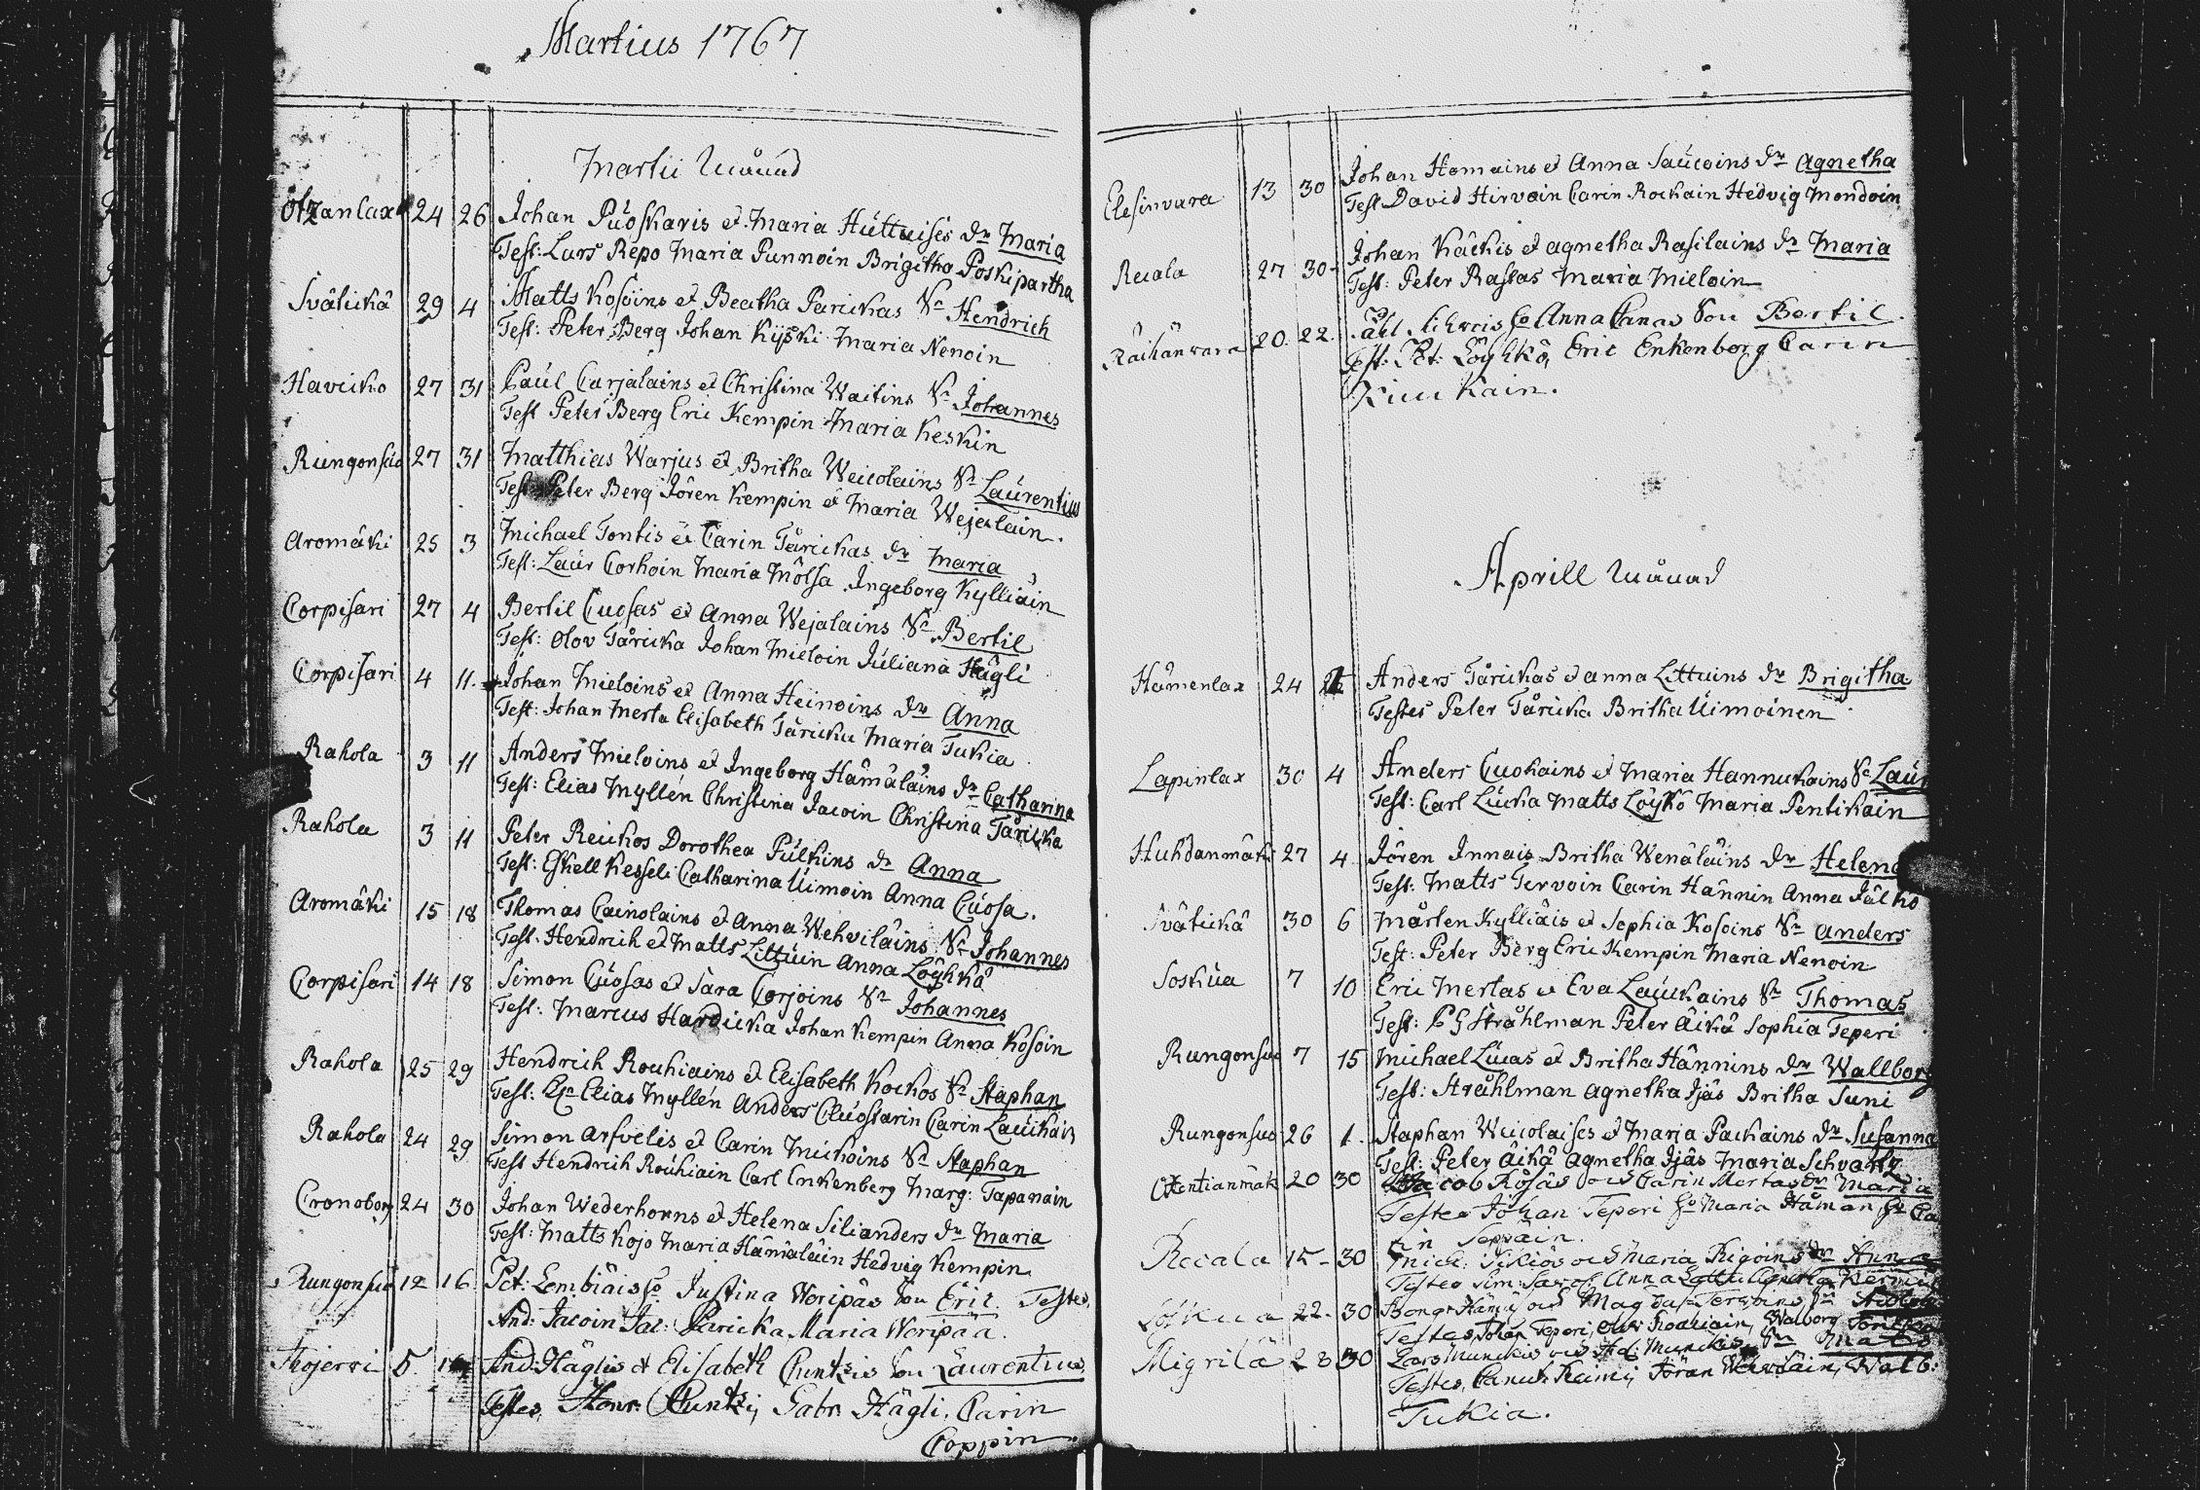 Martius 1767
Martii Månad
Otzanlax 24 26 Johan Puoskaris et Maria Huttuises dr Maria
Test: Lars Repo Maria Punnoin Brigitha Poskipartha
Svätickä 29 4 Matts Kosoins et Beatha Parickas Sn Hendrich
Test: Peter Berg Johan Kijski Maria Nenoin
Havicko 27 31 Paul Carjalains et Christina Waitins Sn Johannes
Test Peter Berg Eric Kempin Maria Keskin
Rungonsuo 27 31 Matthias Warjus et Britha Weicolains Sn Laurentius
Test Peter Berg Jören Kempin et Maria Wejalain.
Aromäki 25 3 Michael Tontis et Carin Tårickas dr Maria
Test: Laur Corhoin Maria Mölsa Ingeborg Kylliäin
Corpisari 27 4 Bertil Cuosas et Anna Wejalains Sn Bertil
Test: Olov Tåricka Johan Mieloin Juliana Hägli
Corpisari 4 11. Johan Mieloins et Anna Heinoins dr Anna
Test: Johan Merta Elisabeth Tåricku Maria Tukia
Rahola 3 11 Anders Mieloins et Ingeborg Hämäläins dr Catharina
Test: Elias Myllén Christina Jacoin Christina Tåricka
Rahola 3 11 Peter Reickos Dorothea Pulkins dr Anna
Test: Eskell Kesseli Catharina Uimoin Anna Cuosa.
Aromäki 15 18 Thomas Cainolains et Anna Wehviläins Sn Johannes
Test. Hendrich et Matts Littuin Anna Löyhkö
Corpisari 14 18 Simon Cuosas et Sara Corjoins Sn Johannes
Test: Marcus Hardicka Johan Kempin Anna Kosoin
Rahola 25 29 Hendrich Rouhiains et Elisabeth Kockos Sn Staphan
Test: Elias Myllén Anders Cuostarin Carin Lauikain
Rahola 24 29 Simon Arfvelis et Carin Mickoins Sn Staphan
Test Hendrich Rouhiain Carl Enkenberg Marg: Tapanain
Cronoborg 24 30 Johan Wederhorns et Helena Silianders dr Maria
Test: Matts Kojo Maria Hämäläin Hedvig Kempin
Rungonsuo 12 16. Pet: Lembiäis Justina Woripäs Son Eric Testes,
And: Jacoin Jac: Paricka Maria Woripää.
5. And: Häglis et Elisabeth Cuntzis Son Laurentius,
Testes, Cuntzi, Gabr. Hägli, Carin
Coppin.
Elesinvara 13 30 Johan Homains et Anna Saucoins dr Agnetha
Test David Hirvoin Carin Rockain Hedvig Mondoin
Recala 27 30 Johan Käckis et Agnetha Rasilains dr Maria
Test: Peter Rastas Maria Mieloin
Räihänvara 20. 22. Anna Canas Son Bertil.
Test: Pet: Löyhkö, Eric Enkenborg Carin
Kiuukain.
Aprill Månad
Hämenlax 24 Anders Tårickas et Anna Littuins dr Brigitha
Testes Peter Tåricka Britha Uimoinen
Lapinlax 30 4 Anders Cuokains et Maria Hannukains Sn Laur
Test: Carl Lucka Matts Löykö Maria Pentikäin
Huhdanmäki 27 4 Jören Innais Britha Wenäläins dr Helena
Test: Matts Tervoin Carin Hännin Anna Jälkö
Svätickä 30 6 Mårten Kylliäis et Sophia Kosoins Sn Anders
Test: Peter Berg Eric Kempin Maria Nenoin
Soskua 7 10 Eric Mertas et Eva Lauckains Sn Thomas
Test: P G Stråhlman Peter Äikä Sophia Teperi
Rungonsuo 7 15 Michael Lucas et Britha Hännins dr Wallborg
Test: Stråhlman Agnetha Ijäs Britha Suni
Rungonsuo 26 1. Staphan Weicolaises et Maria Packains dr Susanna
Test: Peter Äikä Agnetha Ijäs Maria Schvartz
20 30 Jacob Kosas och Carin Mertas dr Maria
Testes Johan Teperi Maria Håman Ca
rin Seppäin.
Recala 15 30 Mich: och Maria Rigoins dr Anna
Testes Sim: Anna
Soskua 22. 30 och Magda: Tervoins
Testes, Johan Teperi, Rouhiain, Walborg
Migrilä 23 30 Lars Munckis och Munckis, Sn Matts
Testes, Canut Rami, Jöran Walb:
Tukia.